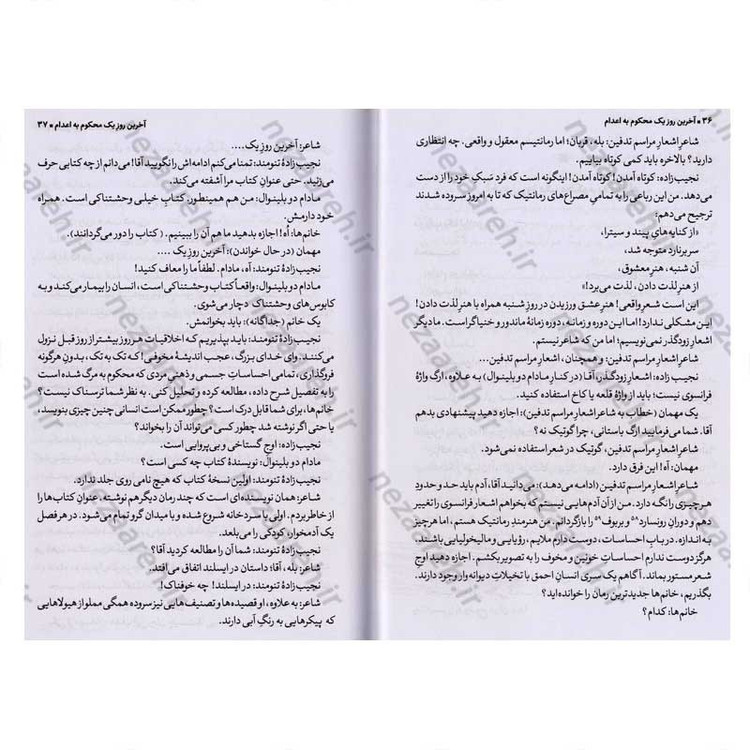 ۳۶ • آخرین روز یک محکوم به اعدام
شاعرِ اشعارِ مراسم تدفین: بله، قربان؛ اما رمانتیسم معقول و واقعی. چه انتظاری
دارید؟ بالاخره باید کمی کوتاه بیاییم.
نجیب‌زاده: کوتاه آمدن! کوتاه آمدن! اینگونه است که فرد سَبکِ خود را از دست
می‌دهد. من این رباعی را به تمامی مصراع‌های رمانتیک که تا به امروز سروده شدند
ترجیح می‌دهم:
«از کنایه‌های پیند و سیترا،
سربرنارد متوجه شد،
آن شنبه، هنرِ معشوق،
از هنرِ لذت دادن، لذت می‌برد!»
این است شعرِ واقعی! هنرِ عشق ورزیدن در روزِ شنبه همراه با هنرِ لذت دادن!
این مشکلی ندارد! اما این دوره و زمانه، دوره زمانهٔ ماندور و خنیاگر است. ما دیگر
اشعارِ زودگذر نمی‌نویسیم؛ اما من که شاعر نیستم.
شاعرِ اشعارِ مراسم تدفین: و همچنان، اشعارِ مراسم تدفین...
نجیب زاده: اشعارِ زودگذر، آقا! (در کنارِ مادام دو بلینوال) به علاوه، ارگ واژهٔ
فرانسوی نیست؛ باید از واژهٔ قلعه یا کاخ استفاده کنید.
یک مهمان (خطاب به شاعرِ اشعارِ مراسم تدفین): اجازه دهید پیشنهادی بدهم
آقا. شما می‌فرمایید ارگِ باستانی، چرا گوتیک نه؟
شاعرِ اشعارِ مراسم تدفین، گوتیک در شعر استفاده نمی‌شود.
مهمان: آه! این فرق دارد.
شاعرِ اشعارِ مراسم تدفین (ادامه می‌دهد): می‌دانید آقا، آدم باید حد و حدودِ
هر چیزی را نگه دارد. من از آن آدم‌هایی نیستم که بخواهم اشعارِ فرانسوی را تغییر
دهم و دوران رونسارد۵۸ و بربوف۵۹ را بازگردانم. من هنرمندِ رمانتیک هستم، اما هرچیز
به اندازه. در بابِ احساسات، دوست دارم ملایم، رؤیایی و مالیخولیایی باشند.
هرگز دوست ندارم احساساتِ خونین و مخوف را به تصویر بکشم. اجازه دهید اوجِ
شعر مستور بماند. آگاهم یک سری انسانِ احمق با تخیلاتِ دیوانه‌وار وجود دارند.
بگذریم، خانم‌ها جدیدترین رمان را خوانده‌اید؟
خانم‌ها: کدام؟
آخرین روز یک محکوم به اعدام • ۳۷
شاعر: آخرین روزِ یک ....
نجیب‌زادهٔ تنومند: تمنا می‌کنم ادامه‌اش را نگویید آقا! می‌دانم از چه کتابی حرف
می‌زنید. حتی عنوانِ کتاب مرا آشفته می‌کند.
مادام دو بلینوال: من هم همینطور، کتاب خیلی وحشتناکی است. همراه
خود دارمش.
خانم‌ها: اُه! اجازه بدهید ما هم آن را ببینیم. (کتاب را دور می‌گردانند).
مهمان (در حال خواندن): آخرین روزِ یک ....
نجیب زادهٔ تنومند: آه، مادام. لطفاً ما را معاف کنید!
مادام دو بلینوال: واقعاً کتاب وحشتناکی است، انسان را بیمار می‌کند و به
کابوس‌های وحشتناک دچار می‌شوی.
یک خانم (جداگانه): باید بخوانمش.
نجیب زادهٔ تنومند: باید بپذیریم که اخلاقیات هر روز بیشتر از روز قبل نزول
می‌کنند. وای خدای بزرگ، عجب اندیشهٔ مخوفی! که تک به تک، بدونِ هرگونه
فروگذاری، تمامی احساساتِ جسمی و ذهنیِ مردی که محکوم به مرگ شده است
را به تفصیل شرح داده، مطالعه کرده و تحلیل کنی. به نظر شما ترسناک نیست؟
خانم‌ها، برای شما قابل درک است؟ چطور ممکن است انسانی چنین چیزی بنویسد،
یا حتی اگر نوشته شد چطور کسی می‌تواند آن را بخواند؟
نجیب‌زاده: اوجِ گستاخی و بی‌پروایی است.
مادام دو بلینوال: نویسندهٔ کتاب چه کسی است؟
نجیب‌زادهٔ تنومند: اولین نسخهٔ کتاب که هیچ نامی روی جلد ندارد.
شاعر: همان نویسنده‌ای است که چند رمان دیگر هم نوشته. عنوانِ کتاب‌ها را
از خاطر بردم. اولی با سردخانه شروع شده و با میدان گرو تمام می‌شود. در هر فصل
یک آدمخوار، کودکی را می‌بلعد.
نجیب‌زادهٔ تنومند: شما آن را مطالعه کردید آقا؟
شاعر: بله، آقا؛ داستان در ایسلند اتفاق می‌افتد.
نجیب‌زادهٔ تنومند: در ایسلند! چه خوفناک!
شاعر: به علاوه، او قصیده‌ها و تصنیف‌هایی نیز سروده همگی مملو از هیولاهایی
که پیکرهایی به رنگِ آبی دارند.
nezaareh.ir